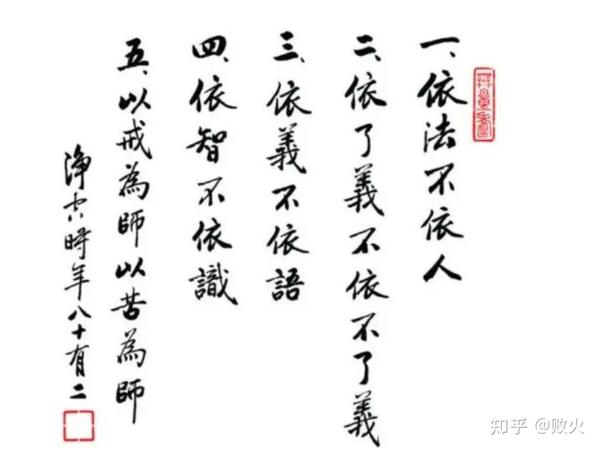 一、依法不依人
二、依了義不依不了義
三、依義不依語
四、依智不依識
五、以戒為師以苦為師
淨空時年八十有二
知乎 @败火